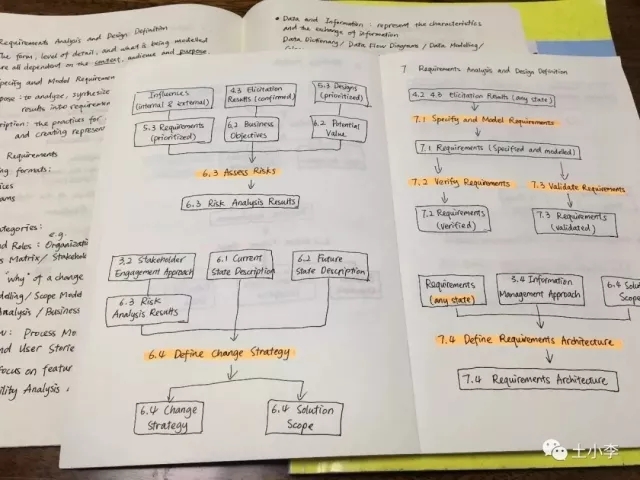 Requirements Analysis and Design Definition
The form, level of detail, and what is being modelled
are all dependent on the context, audience and purpose.
Specify and Model Requiremen
to analyze, synthesize
results into requiremen
the practices for
and creating represent
Requirements
formats:
categories: e.g.
and Roles: Organizatio
Matrix/ Stakehol
"why" of a change
Modelling/ Scope Model
Analysis / Business
Process Mo
and User Storie
Focus on featur
Analysis:
• Data and Information: represent the characteristics
and the exchange of information
Data Dictionary/ Data Flow Diagrams/ Data Modelling/
Influences
(internal & external)
4.3 Elicitation
Results (confirmed)
5.3 Designs
(prioritized)
5.3 Requirements
(prioritized)
6.2 Business
Objectives
6.2 Potential
Value
6.3 Assess Risks
6.3 Risk Analysis Results
3.2 Stakeholder
Engagement Approach
6.1 Current
State Description
6.2 Future
State Description
6.3 Risk
Analysis Results
6.4 Define Change Strategy
6.4 Change
Strategy
6.4 Solution
Scope
7 Requirements Analysis and Design Definition
4.2 4.3 Elicitation Results (any state)
7.1 Specify and Model Requirements
7.1 Requirements (Specified and modelled)
7.2 Verify Requirements
7.3 Validate Requirements
7.2 Requirements
(verified)
7.3 Requirements
(validated)
Requirements
(any state)
3.4 Information
Management Approach
6.4 Solu
Scope
7.4 Define Requirements Architecture
7.4 Requirements Architecture
土小李